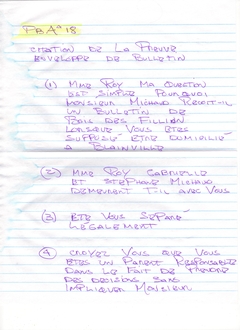 PBA° 18
CITATION DE LA PREUVE
ENVELOPPE DE BULLETIN
(1) MME ROY MA QUESTION
EST SIMPLE POURQUOI
MONSIEUR MICHAUD REÇOIT-IL
UN BULLETIN DE
DES FILLION
LORSQUE VOUS ETES
SUPPOSÉ ÊTRE DOMICILIÉ
A BLAINVILLE
(2) MME ROY GABRIELLE
ET STEPHANE MICHAUD
DEMEURENT T-IL AVEC VOUS
(3) ETE VOUS SÉPARÉ
LEGALEMENT
(4) CROYEZ VOUS QUE VOUS
ETES UN PARENT RESPONSABLE
DANS LE FAIT DE PRENDRE
DES DECISIONS SANS
IMPLIQUER MONSIEUR